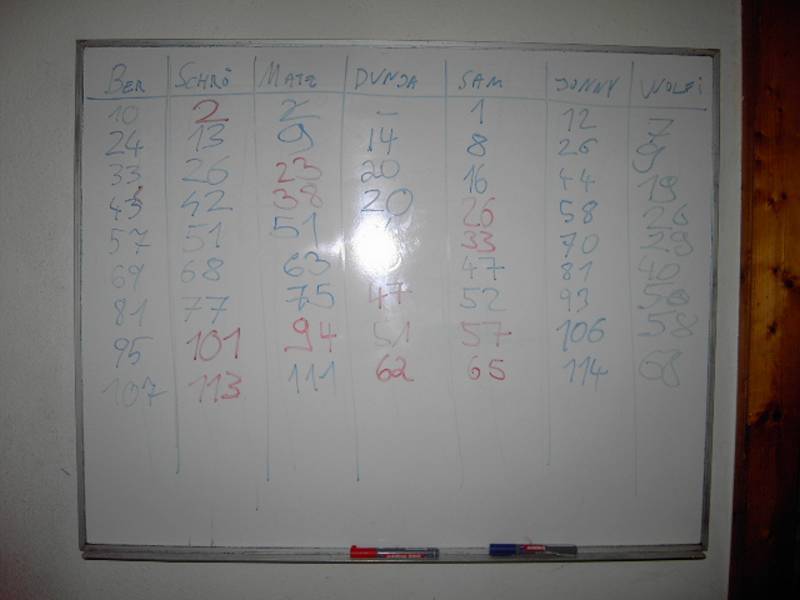 BER SCHRÖ MATZ DUNJA SAM JONNY WOLFI
10 2 2 – 1 12 7
24 13 9 14 8 26 9
33 26 23 20 16 44 19
43 42 38 20 26 58 26
57 51 51 33 70 29
69 68 63 47 81 40
81 77 75 47 52 93 50
95 101 94 51 57 106 58
107 113 111 62 65 114 68